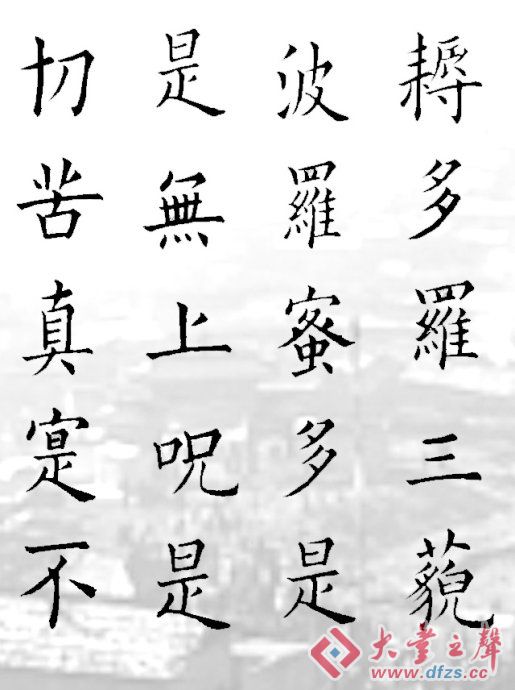 耨多羅三藐
波羅蜜多是
是無上呪是
切苦真寔不
大童之聲
www.dfzs.cc